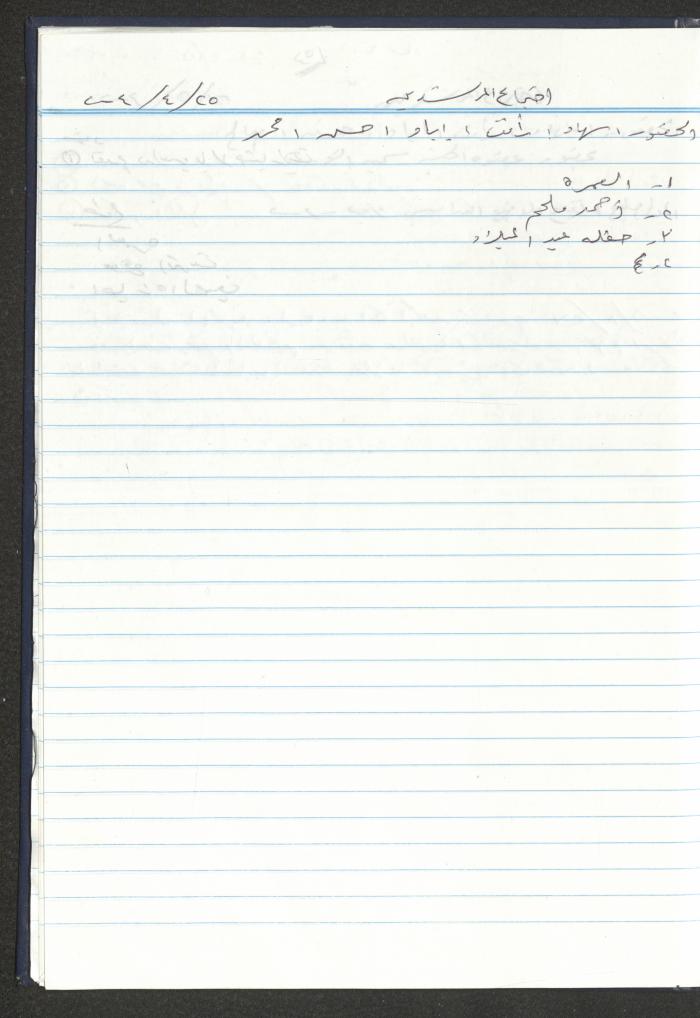 اجتماع المرشدين ٢٥/٤/٢٠٠٤
الحضور / سهاد / رأفت / اياد / حسن / محمد
١- العمرة
٢- أحمد ملحم
٣- حفله عيد الميلاد
٤-